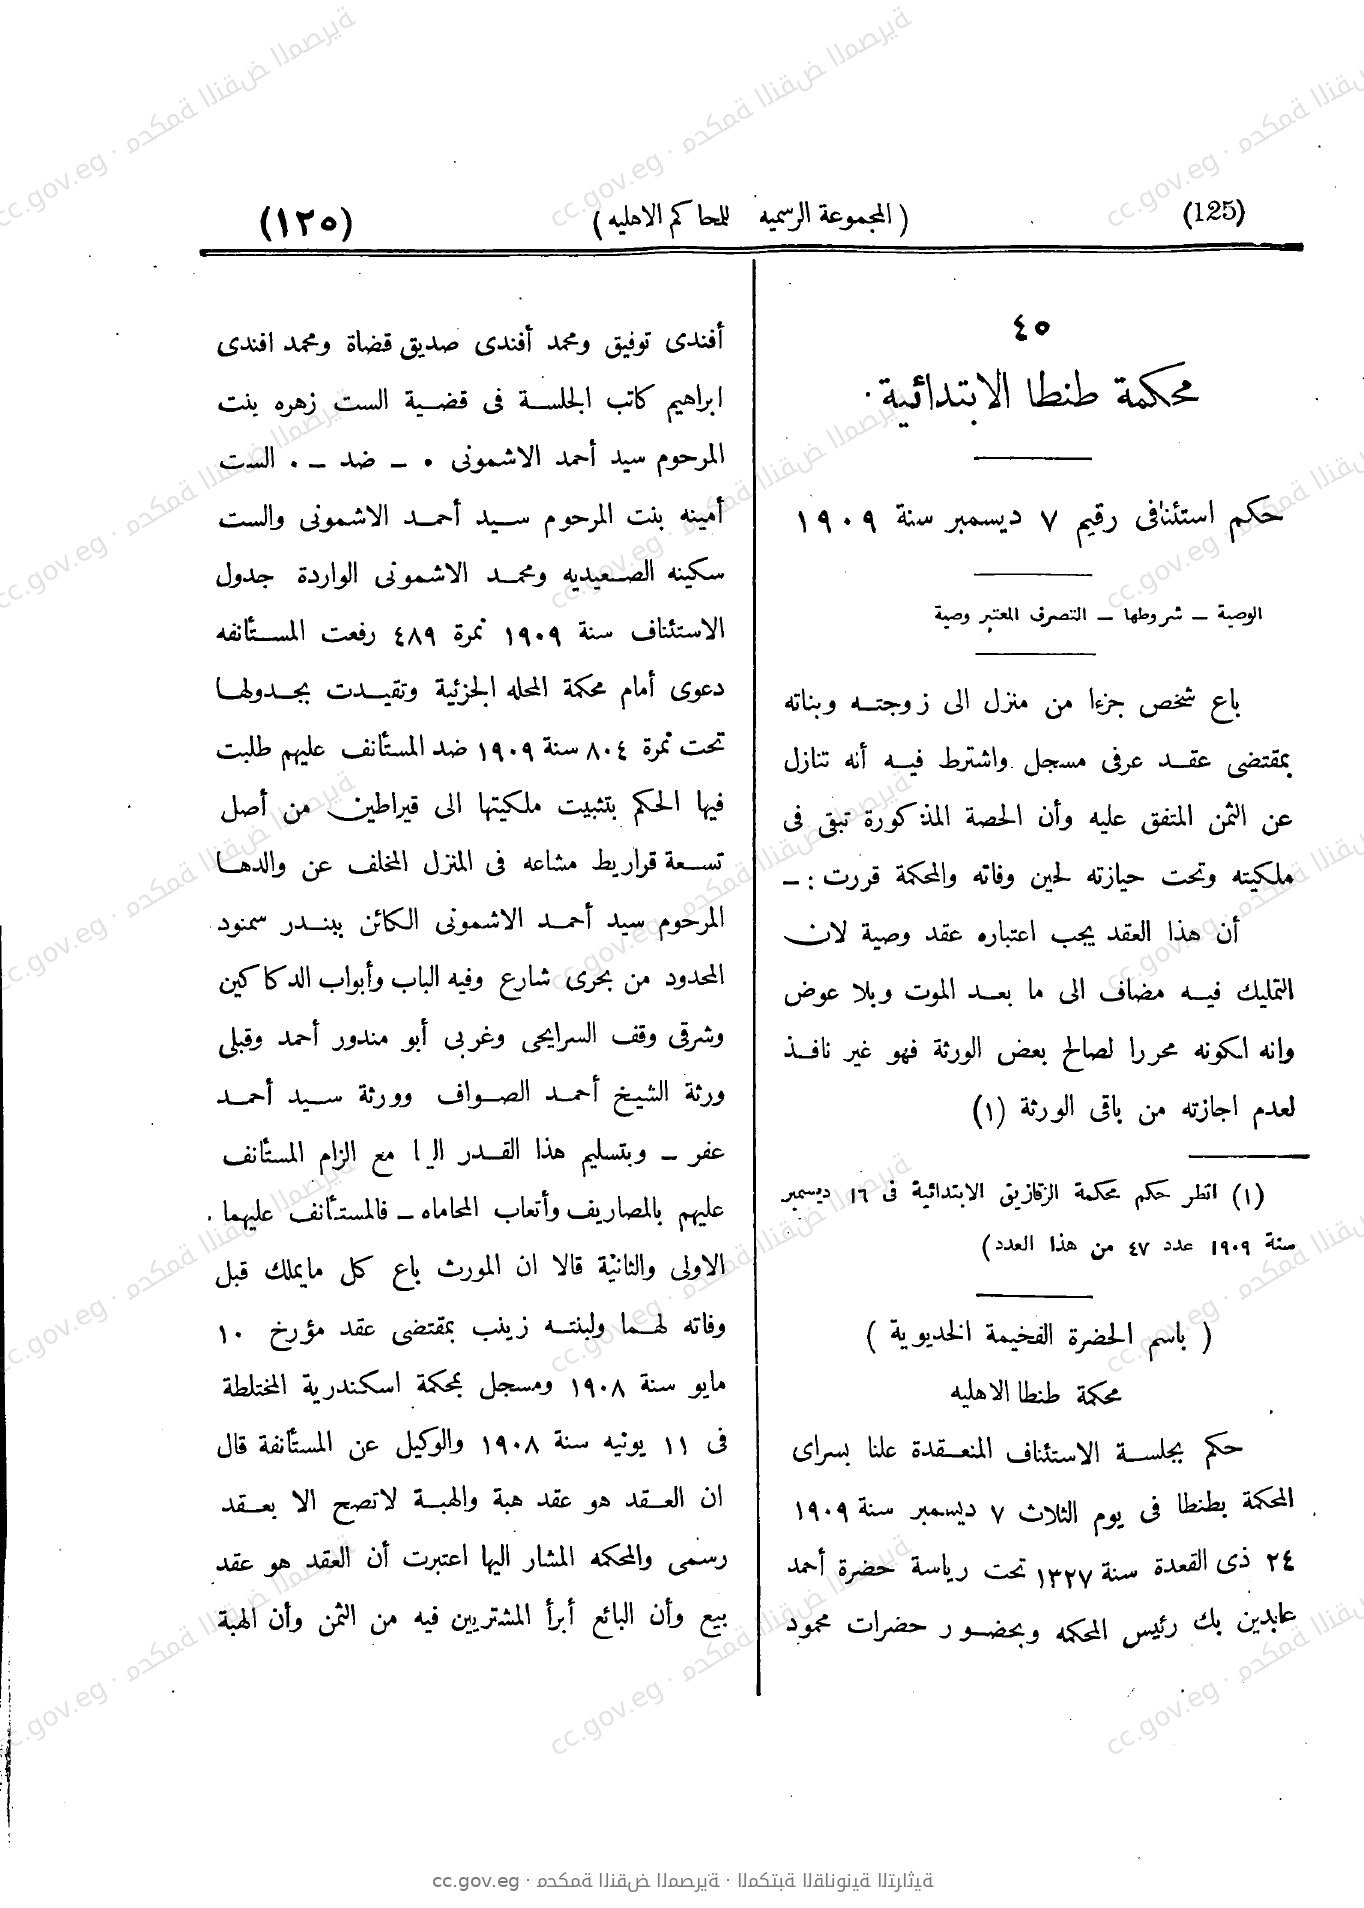 (125)
( المجموعة الرسميه للمحاكم الاهليه )
(١٢٥)
٤٥
محكمة طنطا الابتدائية
حكم استئنافى رقيم ٧ ديسمبر سنة ١٩٠٩
الوصية – شروطها – التصرف المعتبر وصية
باع شخص جزءا من منزل الى زوجته وبناته
بمقتضى عقد عرفى مسجل واشترط فيه أنه تنازل
عن الثمن المتفق عليه وأن الحصة المذكورة تبقى فى
ملكيته وتحت حيازته لحين وفاته والمحكمة قررت : –
أن هذا العقد يجب اعتباره عقد وصية لان
التمليك فيه مضاف الى ما بعد الموت وبلا عوض
وانه لكونه محررا لصالح بعض الورثة فهو غير نافذ
لعدم اجازته من باقى الورثة (١)
(١) انظر حكم محكمة الزقازيق الابتدائية فى ١٦ ديسمبر
سنة ١٩٠٩ عدد ٤٧ من هذا العدد)
( باسم الحضرة الفخيمة الخديوية )
محكمة طنطا الاهليه
حكم بجلسة الاستئناف المنعقدة علنا بسراى
المحكمة بطنطا فى يوم الثلاث ٧ ديسمبر سنة ١٩٠٩
٢٤ ذى القعدة سنة ١٣٢٧ تحت رياسة حضرة أحمد
عابدين بك رئيس المحكمه وبحضور حضرات محمود
أفندى توفيق ومحمد أفندى صديق قضاة ومحمد افندى
ابراهيم كاتب الجلسة فى قضية الست زهره بنت
المرحوم سيد أحمد الاشمونى ٠ – ضد – ٠ الست
أمينه بنت المرحوم سيد أحمد الاشمونى والست
سكينه الصعيديه ومحمد الاشمونى الواردة جدول
الاستئناف سنة ١٩٠٩ نمرة ٤٨٩ رفعت المستأنفه
دعوى أمام محكمة المحله الجزئية وتقيدت بجدولها
تحت نمرة ٨٠٤ سنة ١٩٠٩ ضد المستأنف عليهم طلبت
فيها الحكم بتثبيت ملكيتها الى قيراطين من أصل
تسعة قراريط مشاعه فى المنزل المخلف عن والدها
المرحوم سيد أحمد الاشمونى الكائن ببندر سمنود
المحدود من بحرى شارع وفيه الباب وأبواب الدكاكين
وشرقى وقف السرايجى وغربى أبو مندور أحمد وقبلى
ورثة الشيخ أحمد الصواف وورثة سيد أحمد
عفر – وبتسليم هذا القدر اليا مع الزام المستأنف
عليهم بالمصاريف وأتعاب المحاماه – فالمستأنف عليهما
الاولى والثانية قالا ان المورث باع كل مايملك قبل
وفاته لهما ولبنته زينب بمقتضى عقد مؤرخ ١٠
مايو سنة ١٩٠٨ ومسجل بمحكمة اسكندرية المختلطة
فى ١١ يونيه سنة ١٩٠٨ والوكيل عن المستأنفة قال
ان العقد هو عقد هبة والهبة لاتصح الا بعقد
رسمى والمحكمه المشار اليها اعتبرت أن العقد هو عقد
بيع وأن البائع أبرأ المشتريين فيه من الثمن وأن الهبة
cc.gov.eg · محكمة النقض المصرية · المكتبة القانونية التراثية